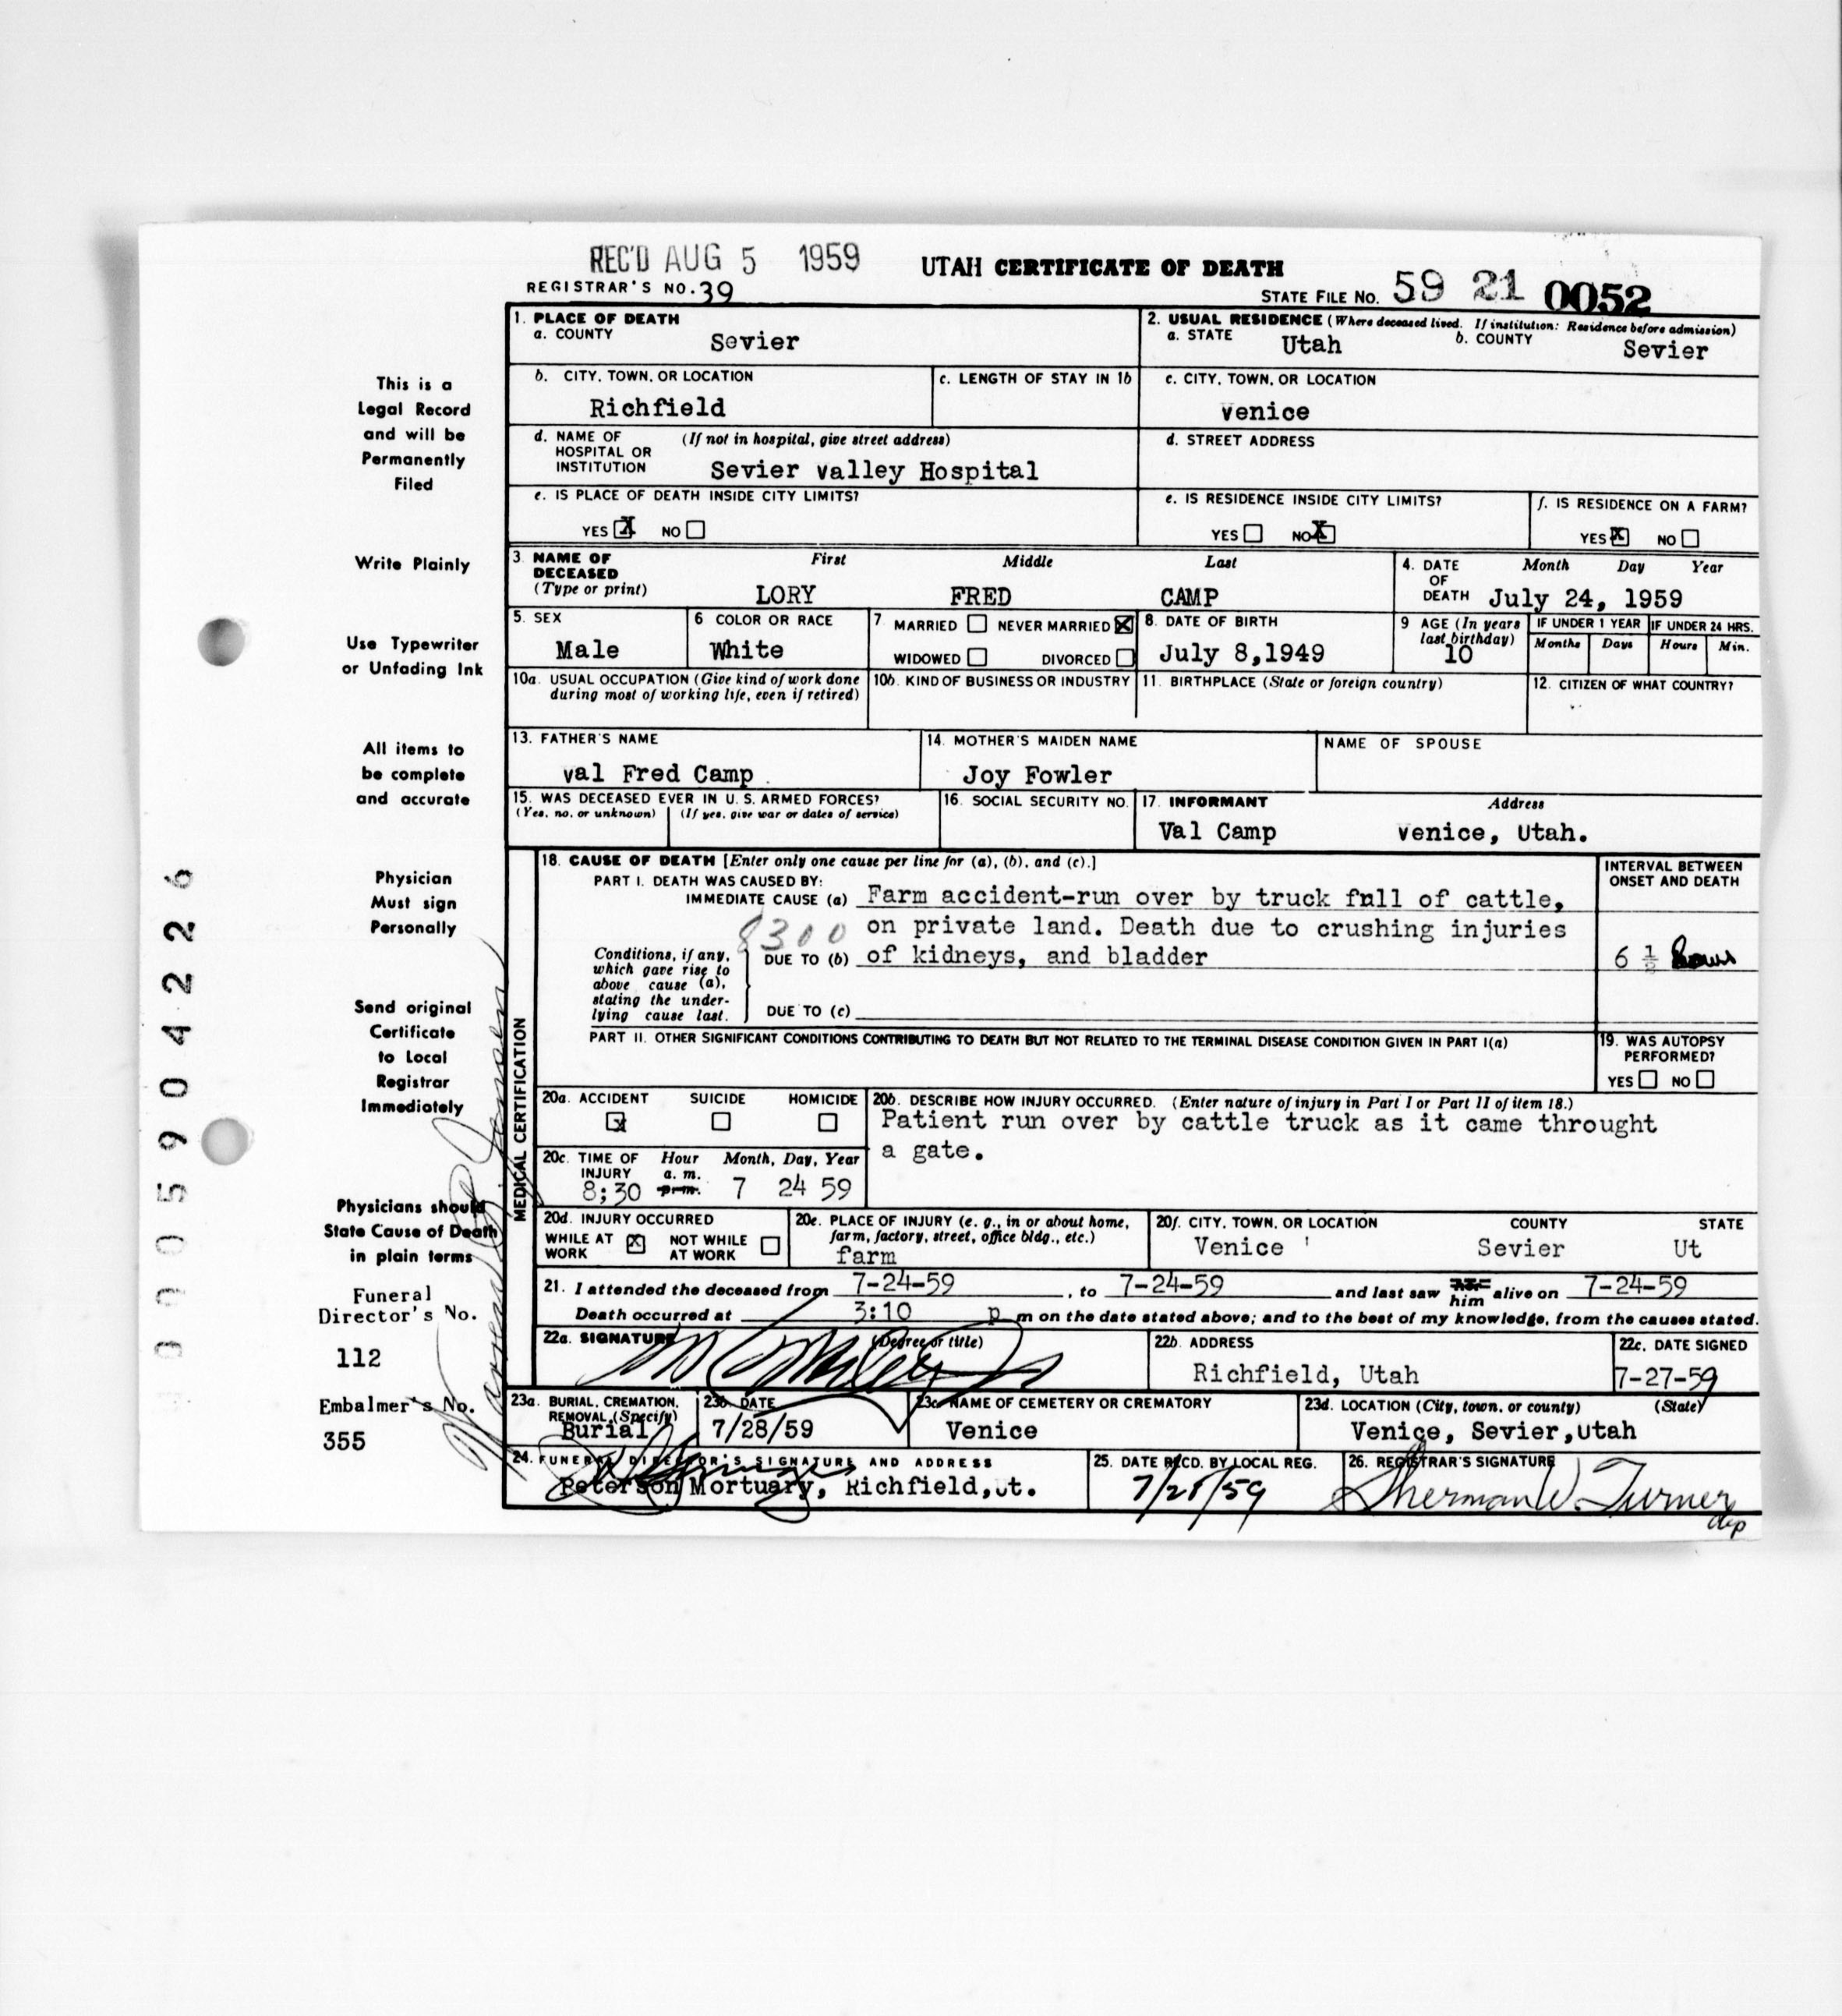 REC'D AUG 5 1959
UTAH CERTIFICATE OF DEATH
REGISTRAR'S NO. 39
STATE FILE NO. 59 21 0052
1. PLACE OF DEATH
a. COUNTY Sevier
2. USUAL RESIDENCE (Where deceased lived. If institution: Residence before admission)
a. STATE Utah b. COUNTY Sevier
b. CITY, TOWN, OR LOCATION Richfield
c. LENGTH OF STAY IN 1b
c. CITY, TOWN, OR LOCATION venice
d. NAME OF HOSPITAL OR INSTITUTION (If not in hospital, give street address) Sevier valley Hospital
d. STREET ADDRESS
e. IS PLACE OF DEATH INSIDE CITY LIMITS?
YES X NO
e. IS RESIDENCE INSIDE CITY LIMITS?
YES NO X
f. IS RESIDENCE ON A FARM?
YES X NO
3. NAME OF DECEASED (Type or print)
First Middle Last
LORY FRED CAMP
4. DATE OF DEATH Month Day Year
July 24, 1959
5. SEX Male
6 COLOR OR RACE White
7. MARRIED NEVER MARRIED X
WIDOWED DIVORCED
8. DATE OF BIRTH July 8,1949
9 AGE (In years last birthday) 10
IF UNDER 1 YEAR Months Days
IF UNDER 24 HRS. Hours Min.
10a. USUAL OCCUPATION (Give kind of work done during most of working life, even if retired)
10b. KIND OF BUSINESS OR INDUSTRY
11. BIRTHPLACE (State or foreign country)
12. CITIZEN OF WHAT COUNTRY?
13. FATHER'S NAME val Fred Camp
14. MOTHER'S MAIDEN NAME Joy Fowler
NAME OF SPOUSE
15. WAS DECEASED EVER IN U. S. ARMED FORCES?
(Yes, no, or unknown) (If yes, give war or dates of service)
16. SOCIAL SECURITY NO.
17. INFORMANT Address
Val Camp venice, Utah.
MEDICAL CERTIFICATION
18. CAUSE OF DEATH [Enter only one cause per line for (a), (b), and (c).]
INTERVAL BETWEEN ONSET AND DEATH
PART I. DEATH WAS CAUSED BY:
IMMEDIATE CAUSE (a) Farm accident-run over by truck full of cattle,
8300 on private land. Death due to crushing injuries
Conditions, if any, which gave rise to above cause (a), stating the underlying cause last.
DUE TO (b) of kidneys, and bladder
6 ½ hours
DUE TO (c)
PART II. OTHER SIGNIFICANT CONDITIONS CONTRIBUTING TO DEATH BUT NOT RELATED TO THE TERMINAL DISEASE CONDITION GIVEN IN PART I(a)
19. WAS AUTOPSY PERFORMED?
YES NO
20a. ACCIDENT X SUICIDE HOMICIDE
20b. DESCRIBE HOW INJURY OCCURRED. (Enter nature of injury in Part I or Part II of item 18.)
Patient run over by cattle truck as it came throught
a gate.
20c. TIME OF INJURY Hour a. m. p. m. Month, Day, Year
8;30 7 24 59
20d. INJURY OCCURRED
WHILE AT WORK X NOT WHILE AT WORK
20e. PLACE OF INJURY (e. g., in or about home, farm, factory, street, office bldg., etc.)
farm
20f. CITY, TOWN, OR LOCATION COUNTY STATE
Venice Sevier Ut
21. I attended the deceased from 7-24-59, to 7-24-59 and last saw her him alive on 7-24-59
Death occurred at 3:10 p m on the date stated above; and to the best of my knowledge, from the causes stated.
22a. SIGNATURE (Degree or title)
22b. ADDRESS Richfield, Utah
22c. DATE SIGNED 7-27-59
23a. BURIAL, CREMATION, REMOVAL (Specify) Burial
23b. DATE 7/28/59
23c. NAME OF CEMETERY OR CREMATORY Venice
23d. LOCATION (City, town, or county) (State)
Venice, Sevier,Utah
24. FUNERAL DIRECTOR'S SIGNATURE AND ADDRESS
Peterson Mortuary, Richfield,Ut.
25. DATE RECD. BY LOCAL REG. 7/28/59
26. REGISTRAR'S SIGNATURE
Sherman W. Turner
dep
This is a
Legal Record
and will be
Permanently
Filed
Write Plainly
Use Typewriter
or Unfading Ink
All items to
be complete
and accurate
Physician
Must sign
Personally
Send original
Certificate
to Local
Registrar
Immediately
Physicians should
State Cause of Death
in plain terms
Funeral
Director's No.
112
Embalmer's No.
355
005904226